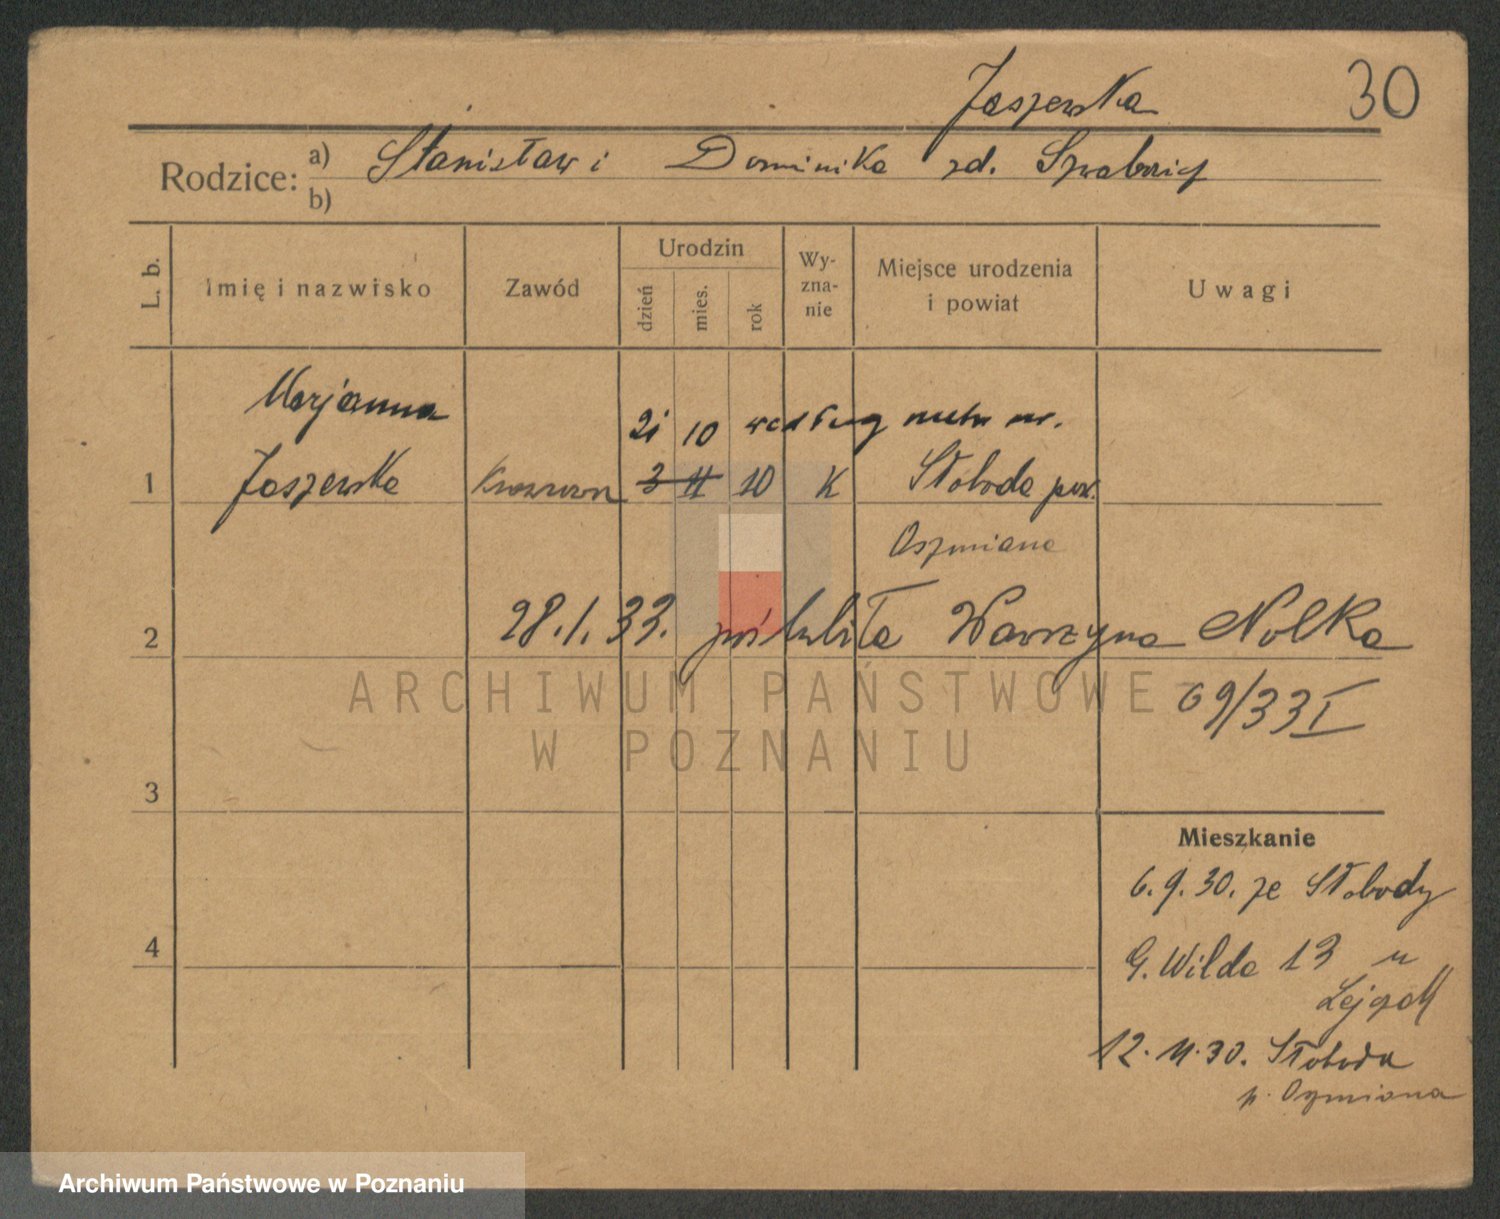 30
Jaszewska
Rodzice: a) Stanisław i Dominika zd.
b)
L. b. Imię i nazwisko Zawód Urodzin dzień mies. rok Wy-zna-nie Miejsce urodzenia i powiat Uwagi
Marjanna 21 10 według metr ur.
1 Jaszewska Krawcowa 3 11 10 K Słoboda pow.
Oszmiana
2 28.1.33. poślubiła Wawrzyna Nolka
69/33 I
ARCHIWUM PAŃSTWOWE
W POZNANIU
3
Mieszkanie
6.9.30. ze Słobody
4 G. Wilda 13 u
12.11.30. Słoboda
p. Oszmiana
Archiwum Państwowe w Poznaniu